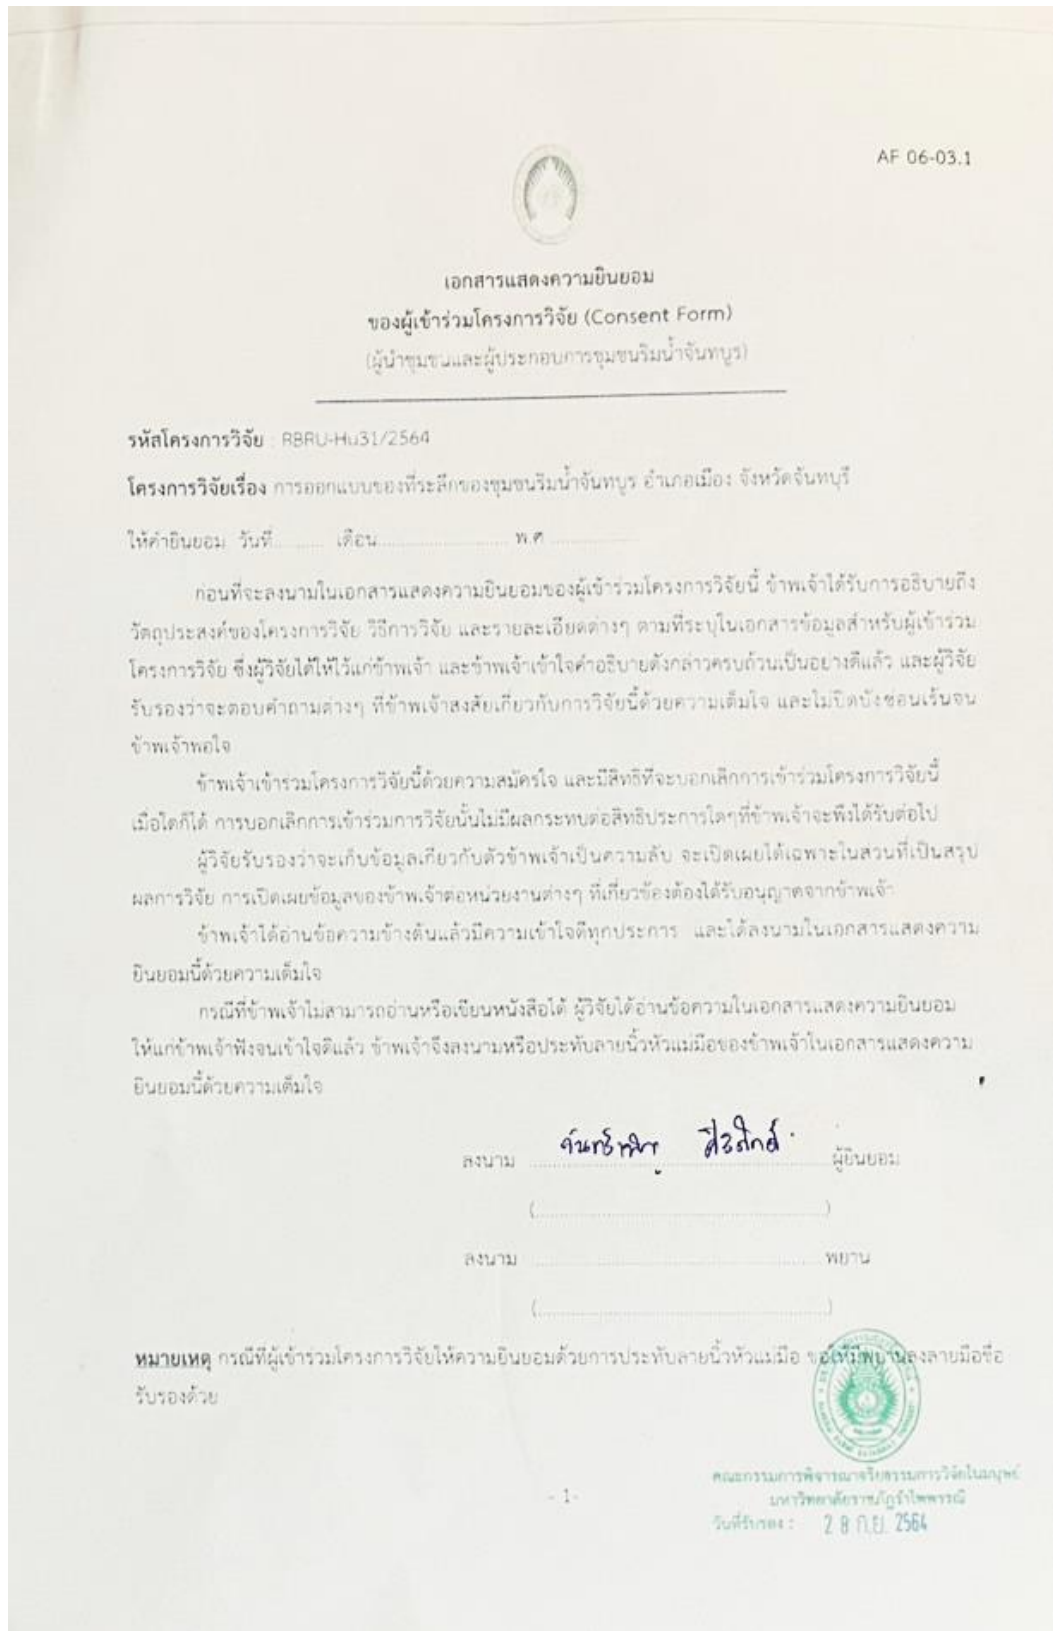 AF 06-03.1
เอกสารแสดงความยินยอม
ของผู้เข้าร่วมโครงการวิจัย (Consent Form)
(ผู้นำชุมชนและผู้ประกอบการชุมชนริมน้ำจันทบูร)
รหัสโครงการวิจัย : RBRU-Hu31/2564
โครงการวิจัยเรื่อง การออกแบบของที่ระลึกของชุมชนริมน้ำจันทบูร อำเภอเมือง จังหวัดจันทบุรี
ให้คำยินยอม วันที่.......... เดือน.......................... พ.ศ .................
ก่อนที่จะลงนามในเอกสารแสดงความยินยอมของผู้เข้าร่วมโครงการวิจัยนี้ ข้าพเจ้าได้รับการอธิบายถึง
วัตถุประสงค์ของโครงการวิจัย วิธีการวิจัย และรายละเอียดต่างๆ ตามที่ระบุในเอกสารข้อมูลสำหรับผู้เข้าร่วม
โครงการวิจัย ซึ่งผู้วิจัยได้ให้ไว้แก่ข้าพเจ้า และข้าพเจ้าเข้าใจคำอธิบายดังกล่าวครบถ้วนเป็นอย่างดีแล้ว และผู้วิจัย
รับรองว่าจะตอบคำถามต่างๆ ที่ข้าพเจ้าสงสัยเกี่ยวกับการวิจัยนี้ด้วยความเต็มใจ และไม่ปิดบังซ่อนเร้นจน
ข้าพเจ้าพอใจ
ข้าพเจ้าเข้าร่วมโครงการวิจัยนี้ด้วยความสมัครใจ และมีสิทธิที่จะบอกเลิกการเข้าร่วมโครงการวิจัยนี้
เมื่อใดก็ได้ การบอกเลิกการเข้าร่วมการวิจัยนั้นไม่มีผลกระทบต่อสิทธิประการใดๆที่ข้าพเจ้าจะพึงได้รับต่อไป
ผู้วิจัยรับรองว่าจะเก็บข้อมูลเกี่ยวกับตัวข้าพเจ้าเป็นความลับ จะเปิดเผยได้เฉพาะในส่วนที่เป็นสรุป
ผลการวิจัย การเปิดเผยข้อมูลของข้าพเจ้าต่อหน่วยงานต่างๆ ที่เกี่ยวข้องต้องได้รับอนุญาตจากข้าพเจ้า
ข้าพเจ้าได้อ่านข้อความข้างต้นแล้วมีความเข้าใจดีทุกประการ และได้ลงนามในเอกสารแสดงความ
ยินยอมนี้ด้วยความเต็มใจ
กรณีที่ข้าพเจ้าไม่สามารถอ่านหรือเขียนหนังสือได้ ผู้วิจัยได้อ่านข้อความในเอกสารแสดงความยินยอม
ให้แก่ข้าพเจ้าฟังจนเข้าใจดีแล้ว ข้าพเจ้าจึงลงนามหรือประทับลายนิ้วหัวแม่มือของข้าพเจ้าในเอกสารแสดงความ
ยินยอมนี้ด้วยความเต็มใจ
ลงนาม ผู้ยินยอม
(..................................................)
ลงนาม .................................................. พยาน
(..................................................)
หมายเหตุ กรณีที่ผู้เข้าร่วมโครงการวิจัยให้ความยินยอมด้วยการประทับลายนิ้วหัวแม่มือ ขอให้มีพยานลงลายมือชื่อ
รับรองด้วย
คณะกรรมการพิจารณาจริยธรรมการวิจัยในมนุษย์
มหาวิทยาลัยราชภัฏรำไพพรรณี
วันที่รับรอง : 28 ก.ย. 2564
- 1-